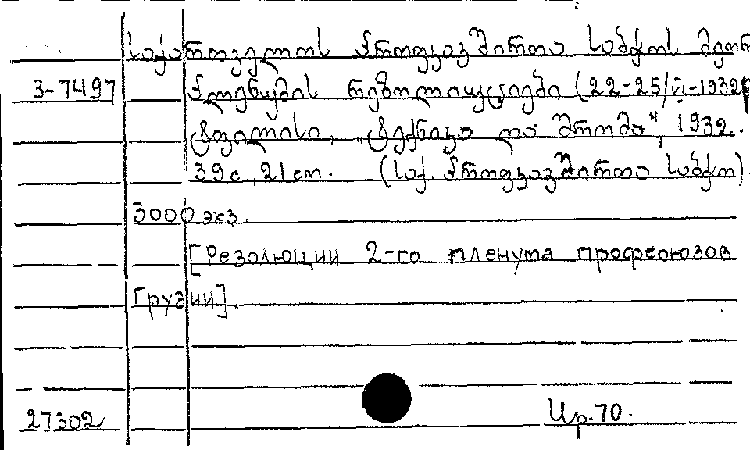 საქართველოს პროფკავშირთა საბჭოს მეორ
3-7497 პლენუმის რეზოლიუციები (22-25/VI-1932წ
ტფილისი, „ტექნიკა და შრომა", 1932.
39с. 21 cm. (საქ. პროფკავშირთა საბჭო).
3000 экз.
[Резолюции 2-го пленума профсоюзов
Грузии].
27302 Ир.70.